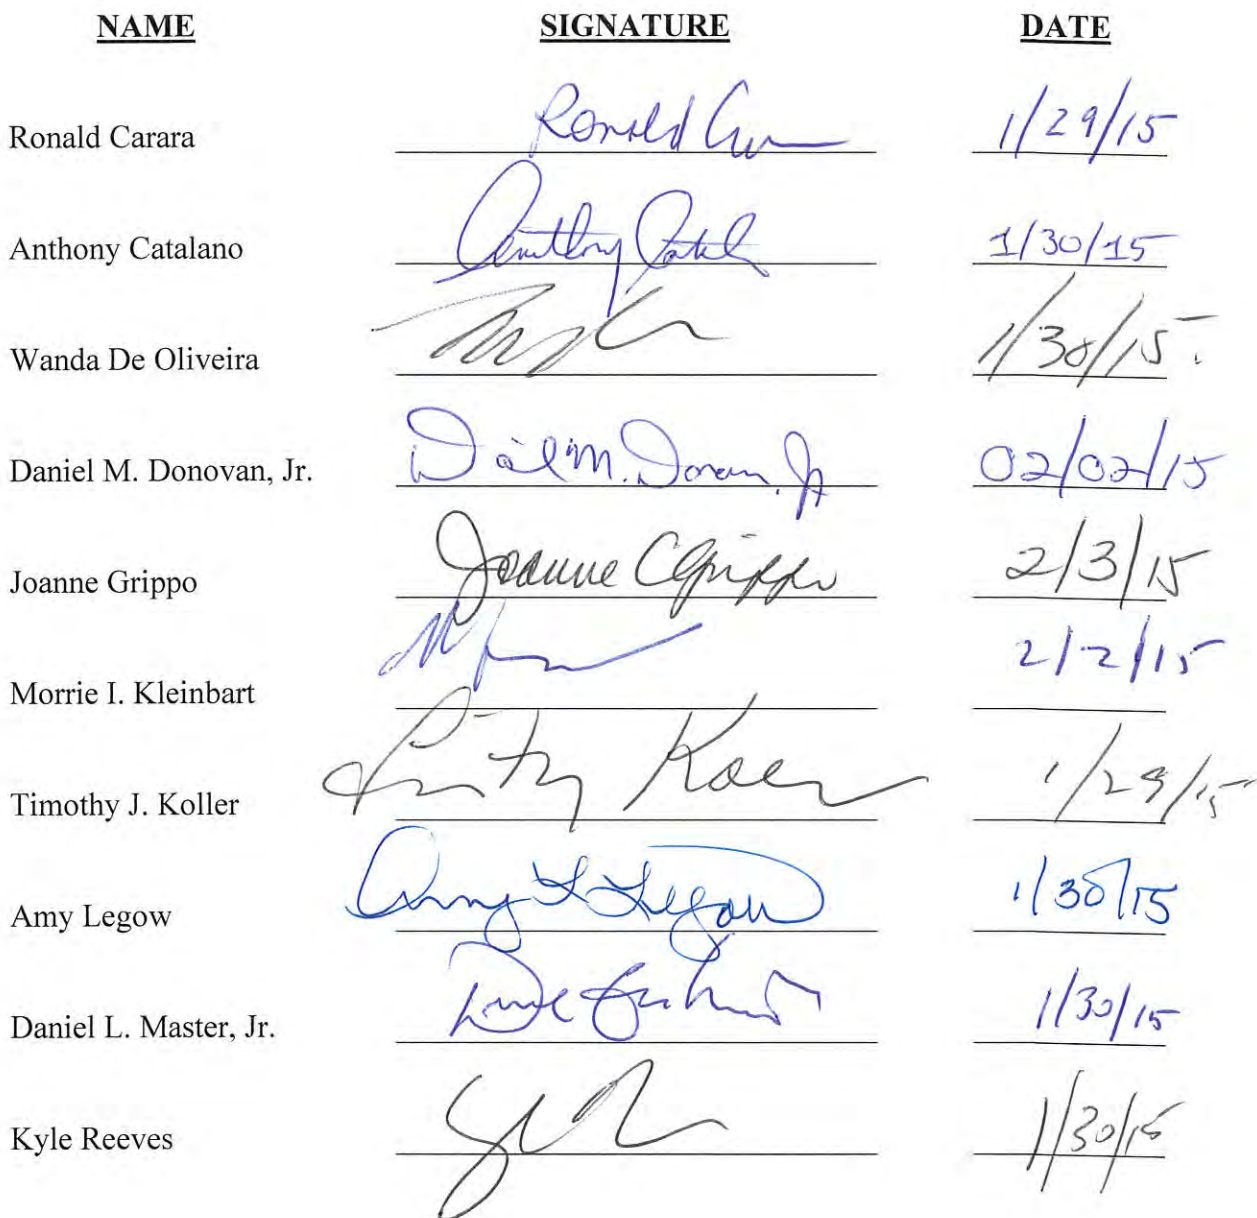 NAME SIGNATURE DATE
Ronald Carara Ronald 1/29/15
Anthony Catalano Anthony 1/30/15
Wanda De Oliveira 1/30/15.
Daniel M. Donovan, Jr. 02/02/15
Joanne Grippo Joanne C Grippo 2/3/15
Morrie I. Kleinbart 2/2/15
Timothy J. Koller 1/29/15
Amy Legow Amy L Legow 1/30/15
Daniel L. Master, Jr. 1/30/15
Kyle Reeves 1/30/15